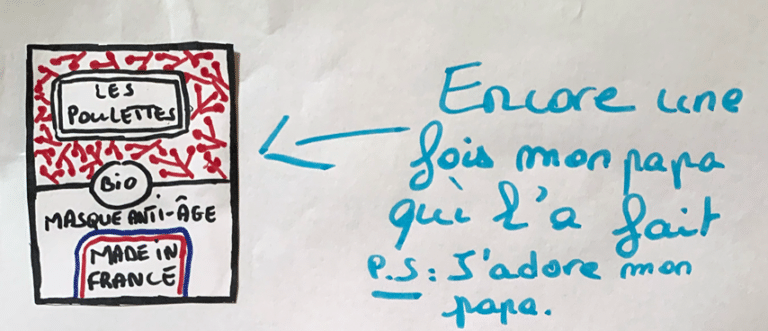 LES
POULETTES
BIO
MASQUE ANTI-ÂGE
MADE IN
FRANCE
Encore une
fois mon papa
qui l'a fait
P.S: J'adore mon
papa.